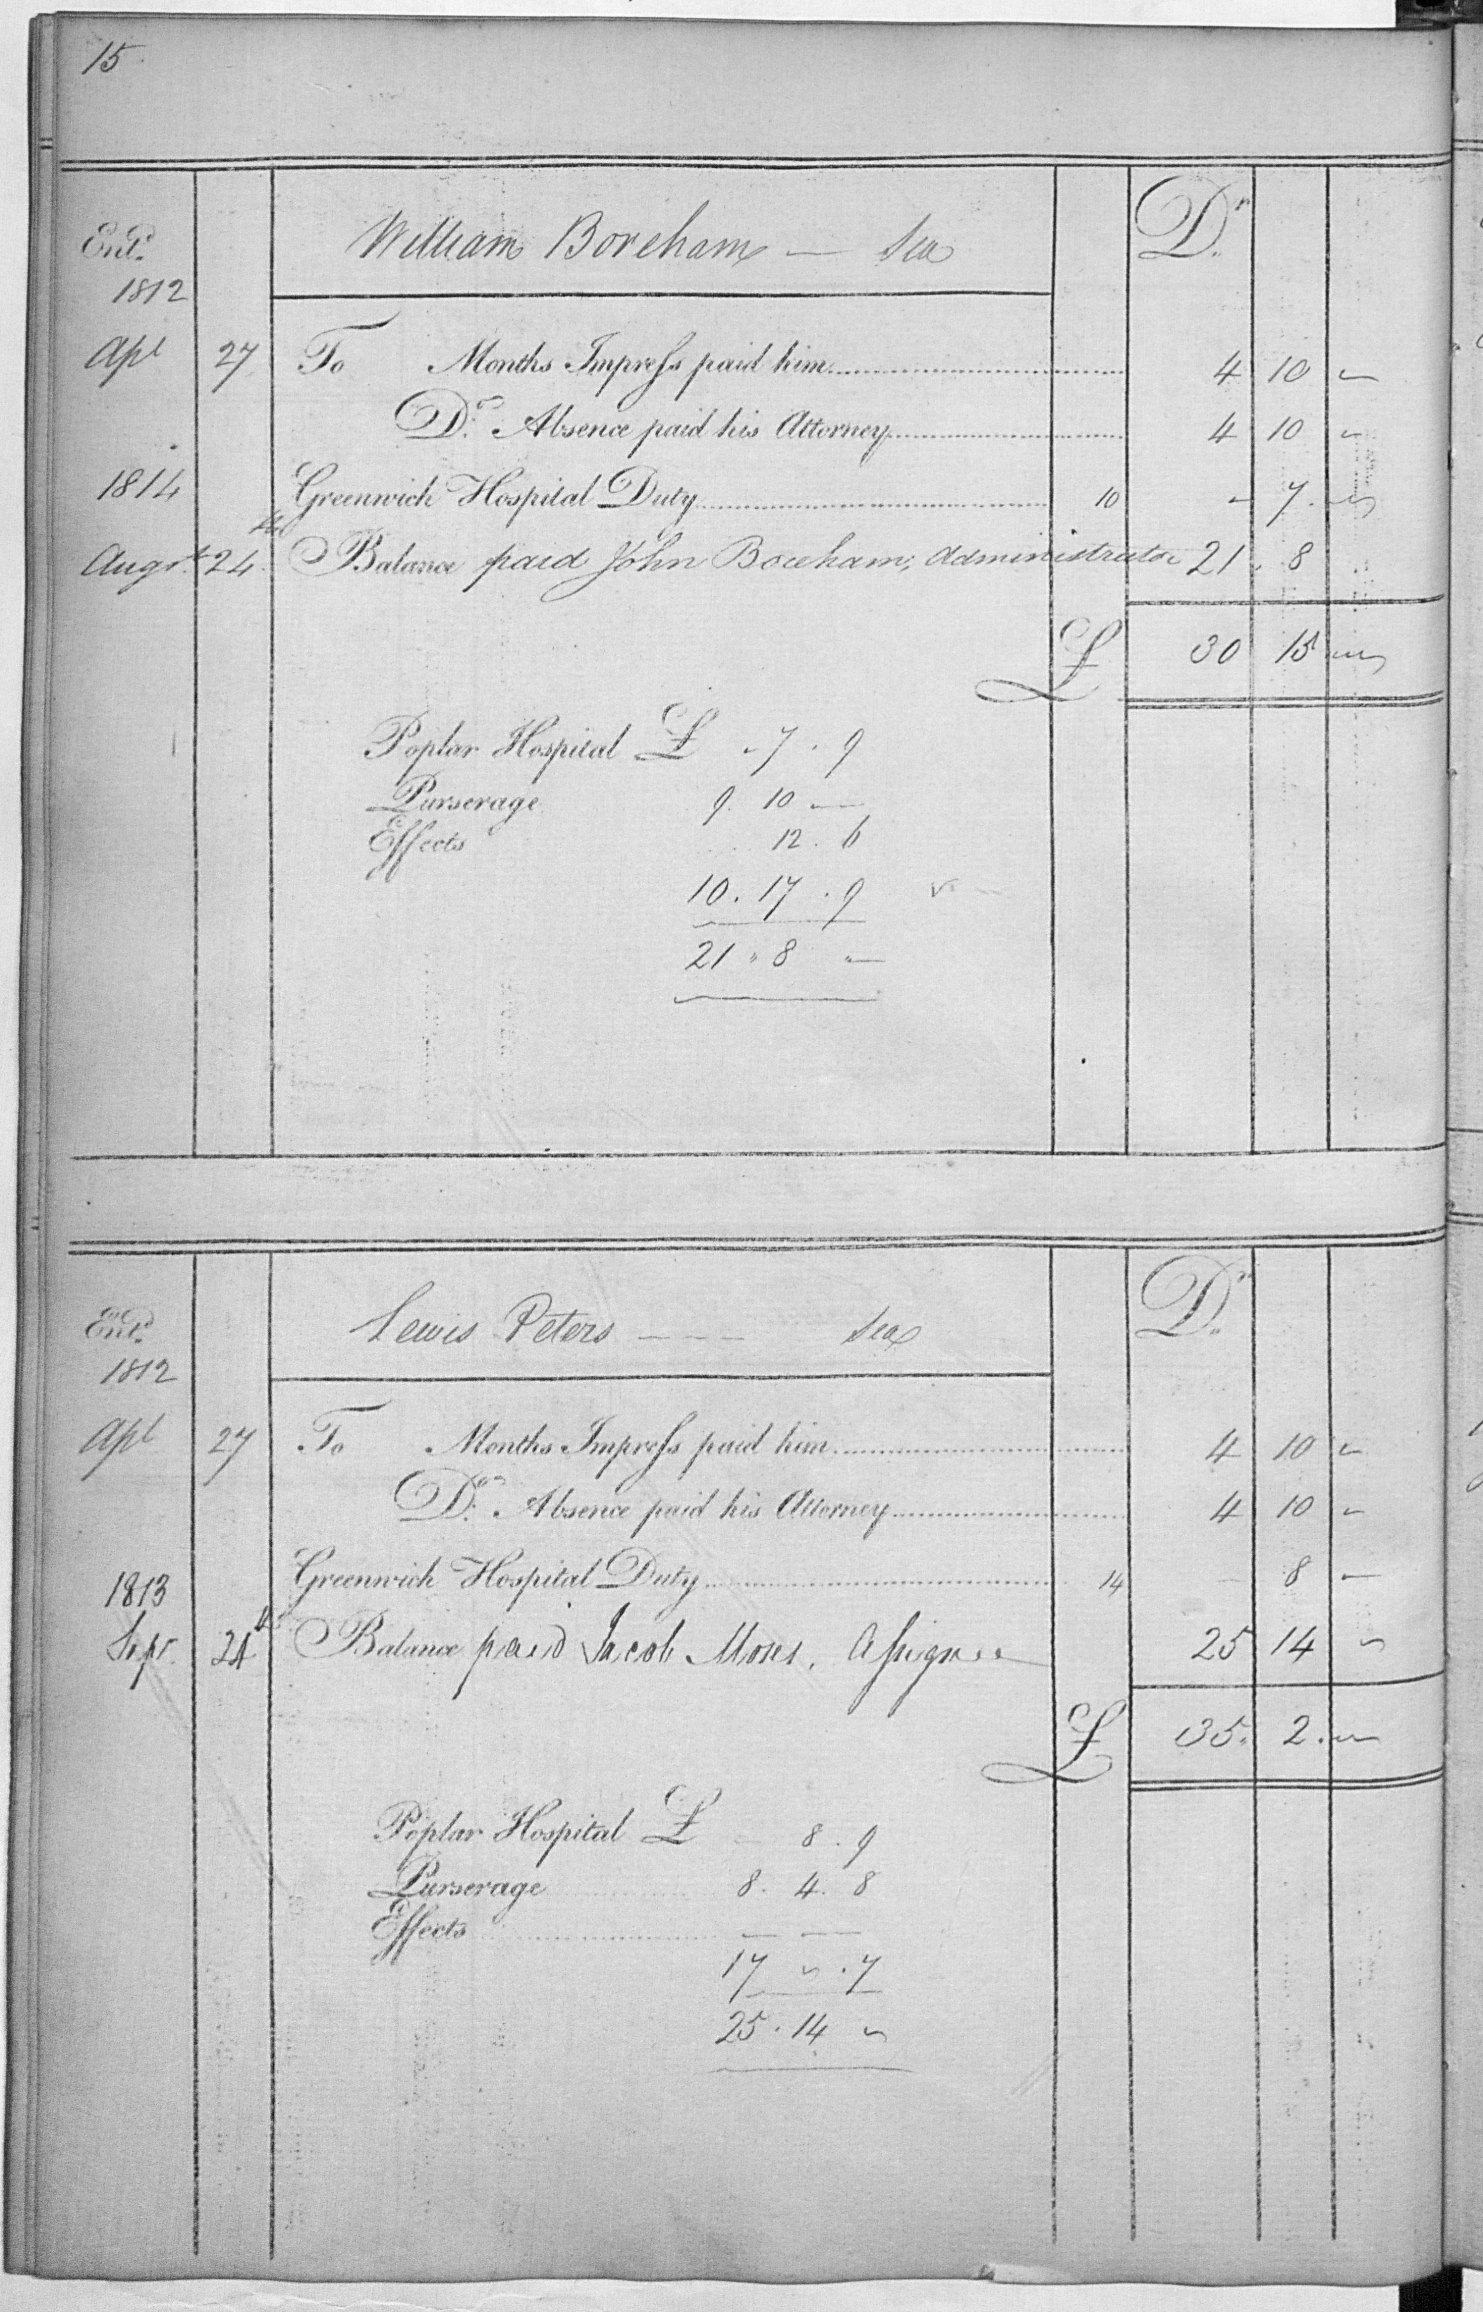 15
William Boreham — Sea Dr
Entd
1812
Apl 27 To Months Impress paid him 4 10 "
Do Absence paid his Attorney 4 10 "
1814 Greenwich Hospital Duty 10 " 7 "
Augst 24th Balance paid John Boreham, Administrator 21 . 8
£ 30 15 "
Poplar Hospital £ " 7 . 9
Purserage 9 . 10 —
Effects 12 . 6
10 . 17 . 9
21 " 8 "
Lewis Peters — — — Sea Dr
Entd
1812
Apl 27 To Months Impress paid him 4 10 "
Do Absence paid his Attorney 4 10 "
1813 Greenwich Hospital Duty 14 — 8 —
Sepr 24th Balance paid Jacob Moses, Assignee 25 14 "
£ 35 . 2 . "
Poplar Hospital £ — 8 . 9
Purserage 8 . 4 . 8
Effects — —
17 " . 7
25 . 14 "